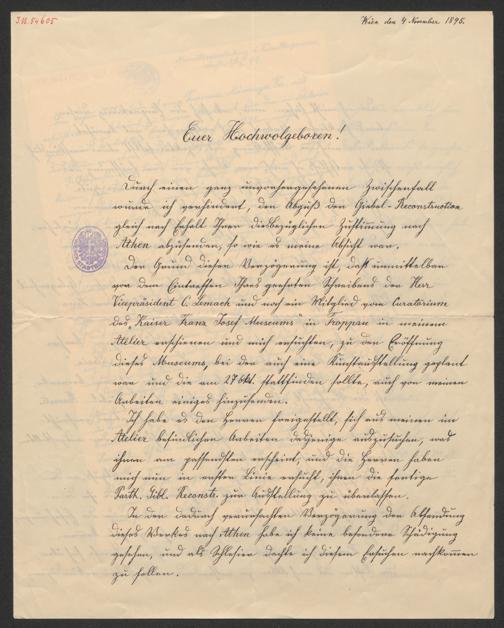 I.N. 54605
Wien den 4 November 1895.
Euer Hochwolgeboren!
Durch einen ganz unvorhergesehenen Zwischenfall
wurde ich verhindert, den Abguß der Giebel-Reconstruction
gleich nach Erhalt Ihrer diesbezüglichen Zustimmung nach
Athen abzusenden, so wie es meine Absicht war.
Der Grund dieser Verzögerung ist, daß unmittelbar
vor dem Eintreffen Ihres geehrten Schreibens der Herr
Vicepräsident C. und noch ein Mitglied vom Curatorium
des "Kaiser Franz Josef Museums" in Troppau in meinem
Atelier erschienen und mich ersuchten, zu der Eröffnung
dieses Museums, bei der auch eine Kunstausstellung geplant
war und die am 27 Okt. stattfinden sollte, auch von meinen
Arbeiten einiges hinzusenden.
Ich habe es den Herren freigestellt, sich aus meinen im
Atelier befindlichen Arbeiten dasjenige auszusuchen, was
ihnen am passendsten erscheint, und die Herren haben
mich nun in erster Linie ersucht, ihnen die fertige
Parth. Gibl. Reconstr. zur Ausstellung zu überlassen.
In der dadurch verursachten Verzögerung der Absendung
dieses Werkes nach Athen habe ich keine besondere Schädigung
gesehen, und als Schlesier dachte ich diesem Ersuchen nachkommen
zu sollen.